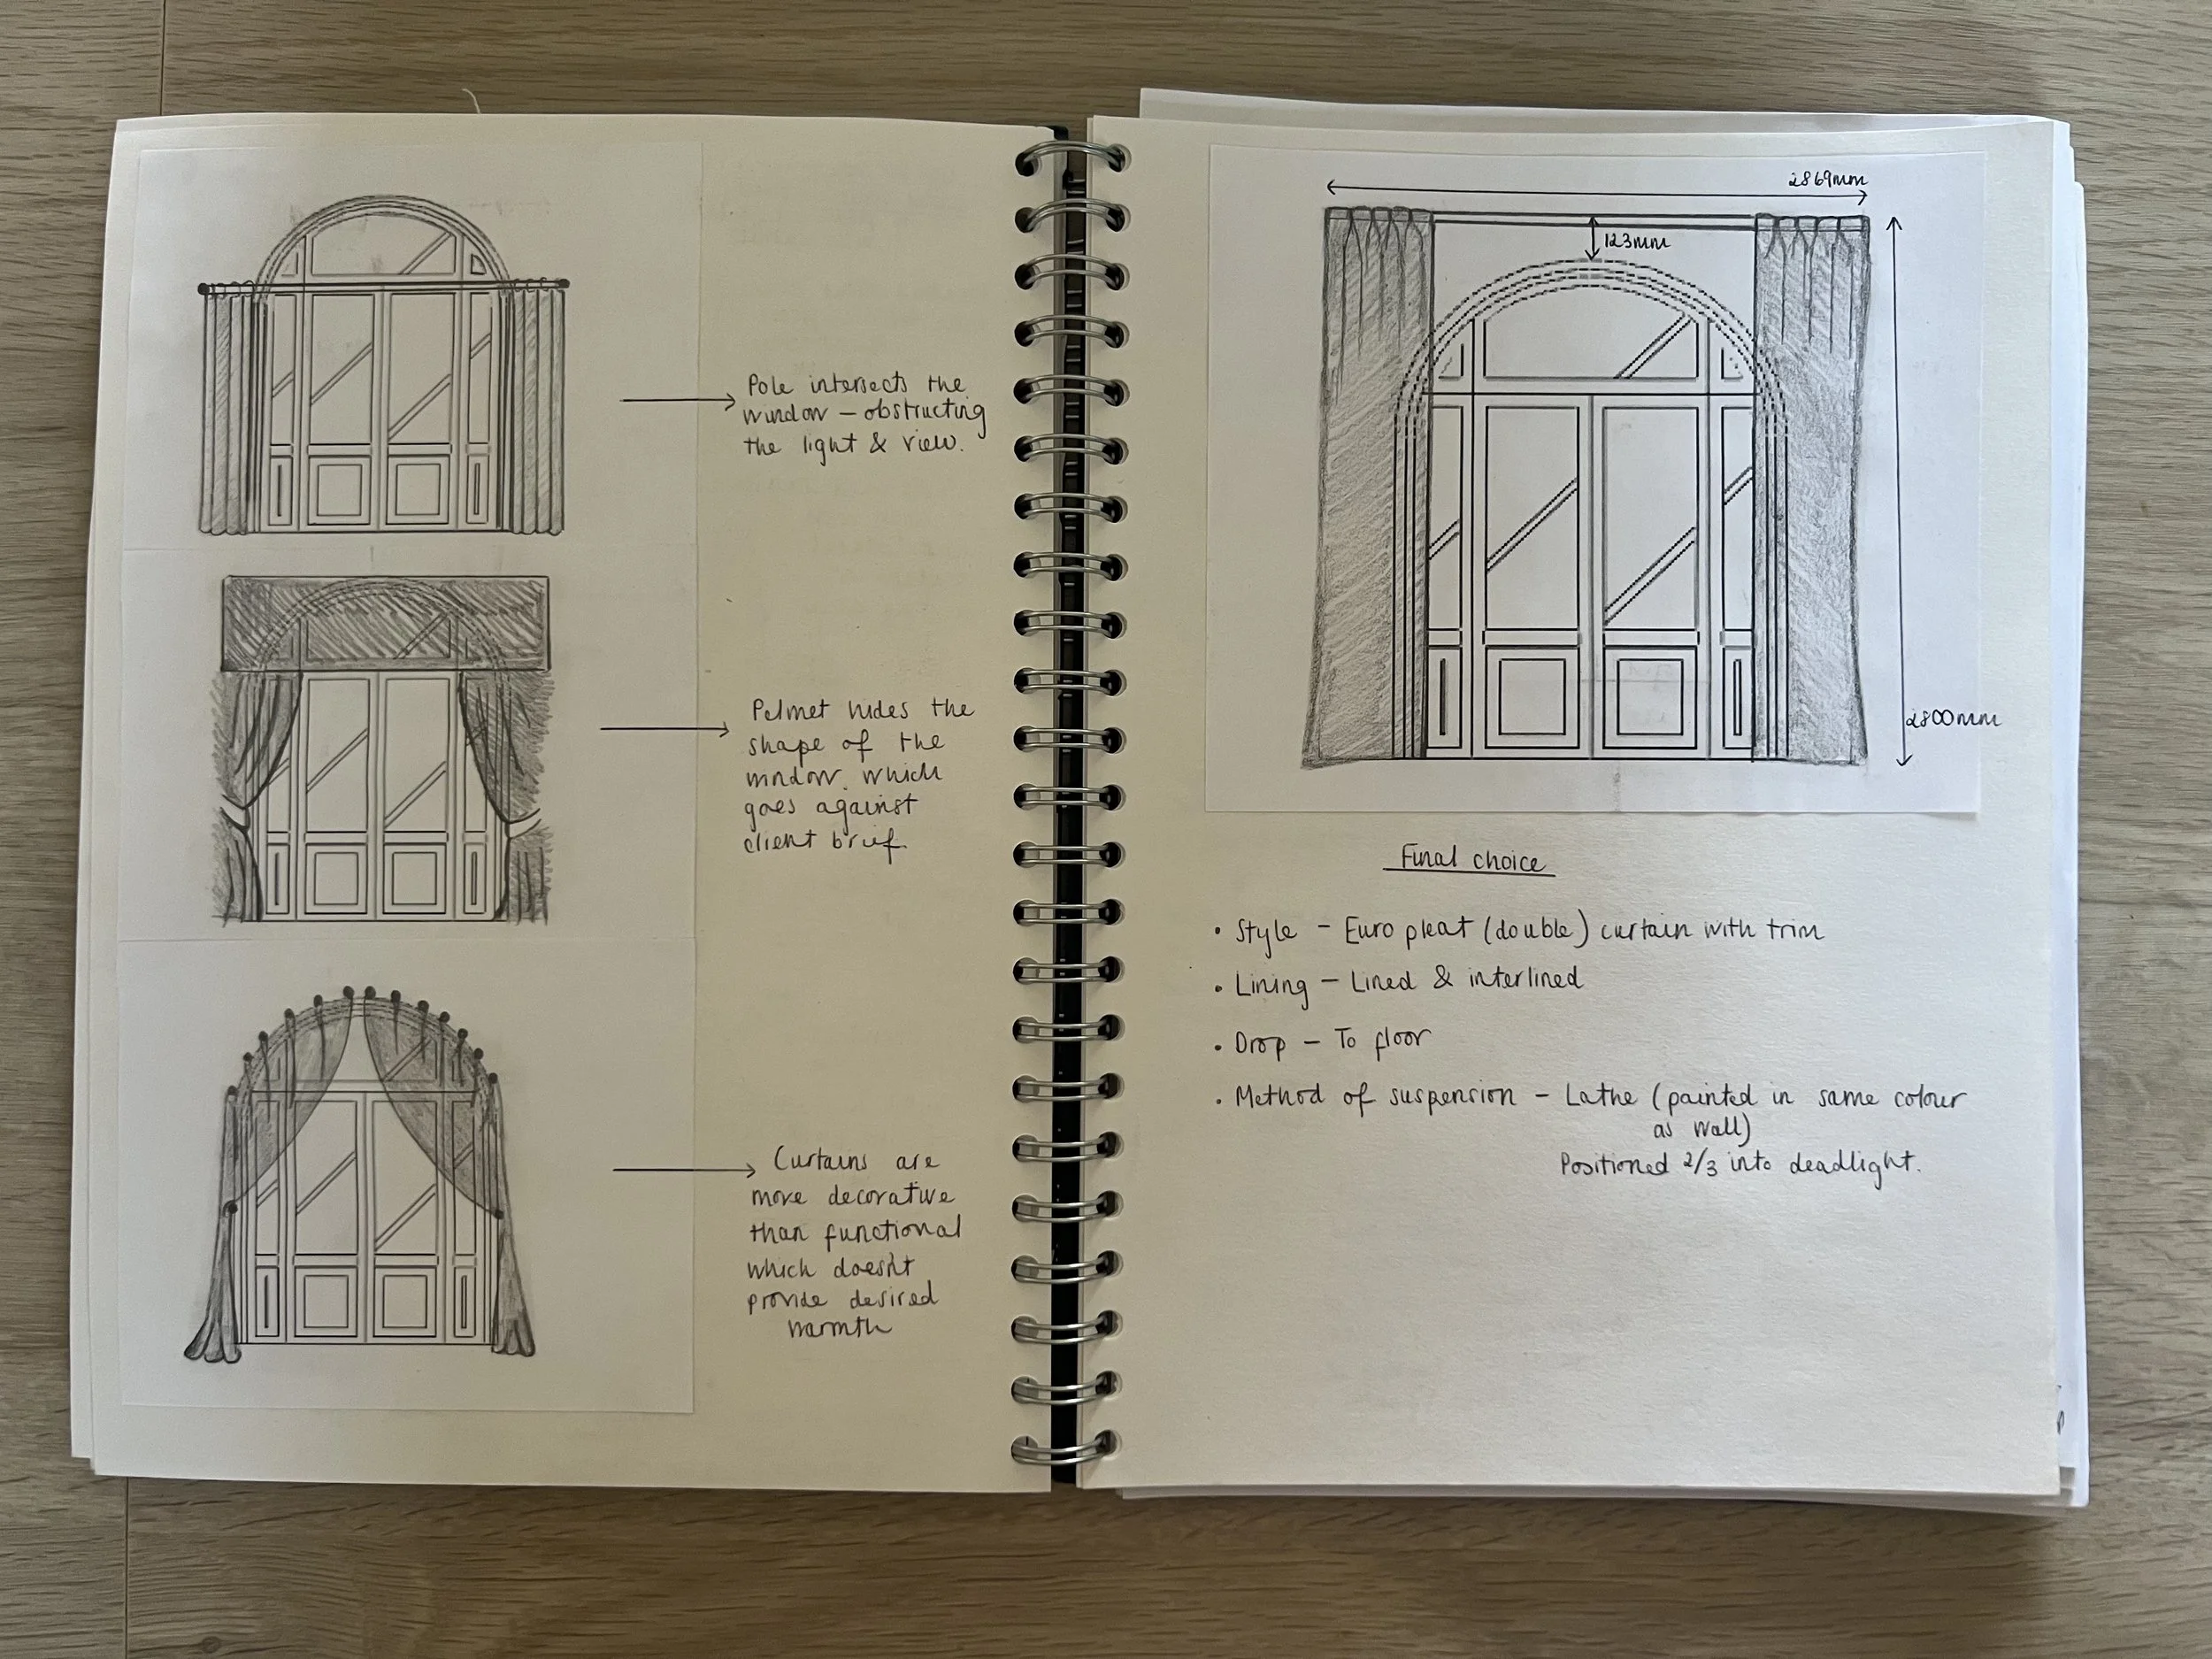 Pole intersects the
window – obstructing
the light & view.
Pelmet hides the
shape of the
window. which
goes against
client brief.
Curtains are
more decorative
than functional
which doesn't
provide desired
warmth
2869mm
123mm
2800mm
Final choice
• Style – Euro pleat (double) curtain with trim
• Lining – Lined & interlined
• Drop – To floor
• Method of suspension – Lathe (painted in same colour
as wall)
Positioned 2/3 into deadlight.